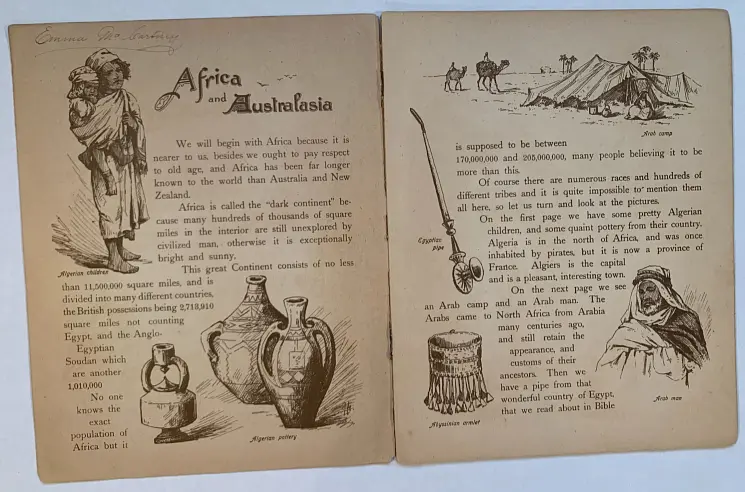 Emma McCartney
Africa
and Australasia
We will begin with Africa because it is
nearer to us, besides we ought to pay respect
to old age, and Africa has been far longer
known to the world than Australia and New
Zealand.
Africa is called the "dark continent" be-
cause many hundreds of thousands of square
miles in the interior are still unexplored by
civilized man, otherwise it is exceptionally
bright and sunny.
Algerian children
This great Continent consists of no less
than 11,500,000 square miles, and is
divided into many different countries,
the British possessions being 2,713,910
square miles not counting
Egypt, and the Anglo-
Egyptian
Soudan which
are another
1,010,000
No one
knows the
exact
population of
Africa but it
Algerian pottery
Arab camp
is supposed to be between
170,000,000 and 205,000,000, many people believing it to be
more than this.
Of course there are numerous races and hundreds of
different tribes and it is quite impossible to mention them
all here, so let us turn and look at the pictures.
On the first page we have some pretty Algerian
children, and some quaint pottery from their country.
Algeria is in the north of Africa, and was once
inhabited by pirates, but it is now a province of
France. Algiers is the capital
and is a pleasant, interesting town.
Egyptian
pipe
On the next page we see
an Arab camp and an Arab man. The
Arabs came to North Africa from Arabia
many centuries ago,
and still retain the
appearance, and
customs of their
ancestors. Then we
have a pipe from that
wonderful country of Egypt,
that we read about in Bible
Abyssinian armlet
Arab man